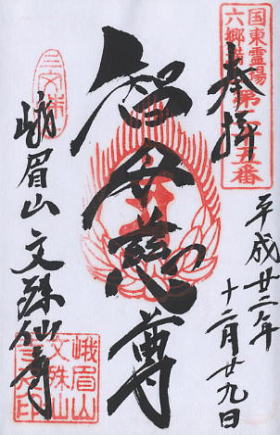 国東霊場
六郷満山
第二十五番
奉拝
平成廿二年
十二月廿九日
智母慈尊
三文殊
峨眉山文殊仙寺
峨眉山
文殊仙
寺之印